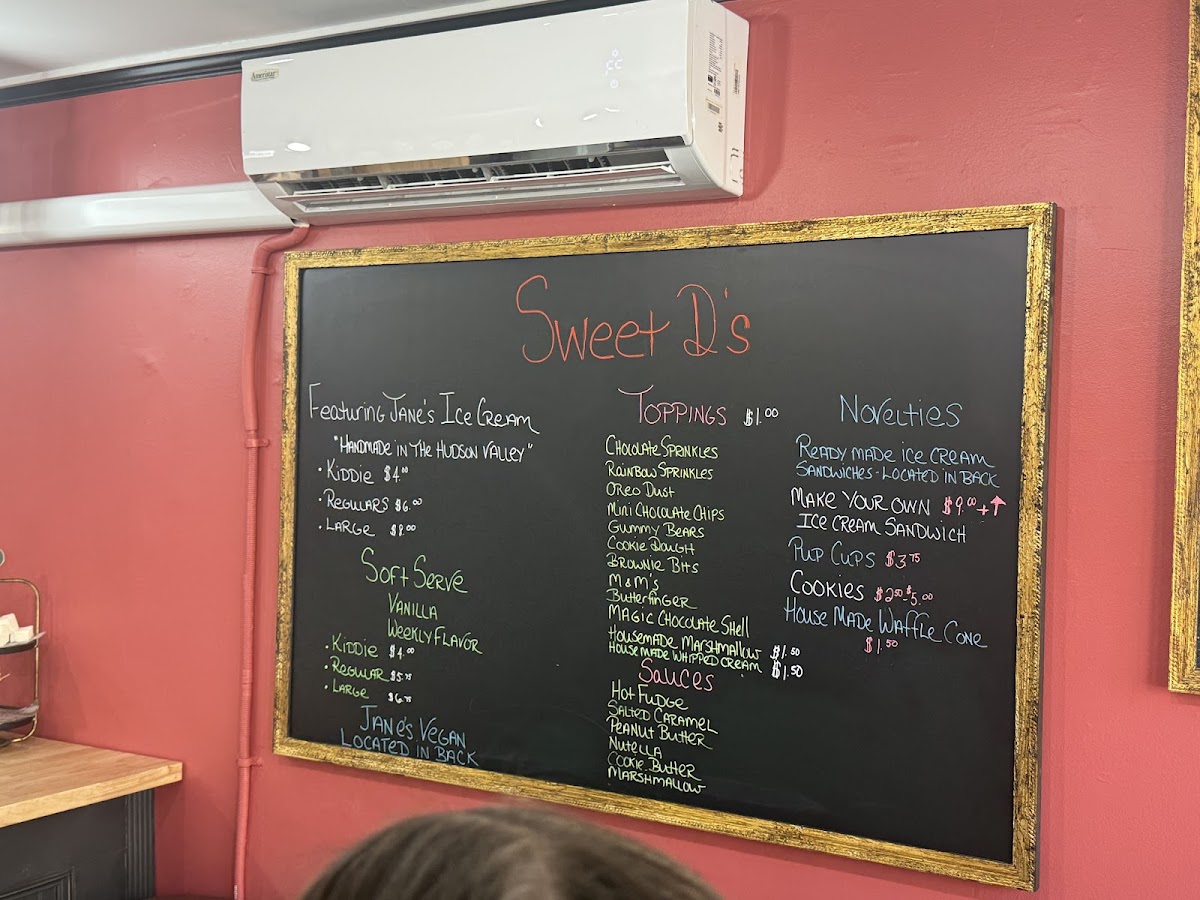 Ameristar
Sweet D's
Featuring Jane's Ice Cream
"Handmade in the Hudson Valley"
• Kiddie $4.00
• Regulars $6.00
• Large $8.00
Soft Serve
Vanilla
Weekly Flavor
• Kiddie $4.00
• Regular $5.75
• Large $6.75
Jane's Vegan
Located in Back
Toppings $1.00
Chocolate Sprinkles
Rainbow Sprinkles
Oreo Dust
Mini Chocolate Chips
Gummy Bears
Cookie Dough
Brownie Bits
M&M's
Butterfinger
Magic Chocolate Shell
Housemade Marshmallow $1.50
House made whipped cream $1.50
Sauces
Hot Fudge
Salted Caramel
Peanut Butter
Nutella
Cookie Butter
Marshmallow
Novelties
Ready made ice cream
Sandwiches - Located in back
Make your own $9.00+↑
Ice Cream Sandwich
Pup Cups $3.75
Cookies $2.50-$5.00
House Made Waffle Cone
$1.50